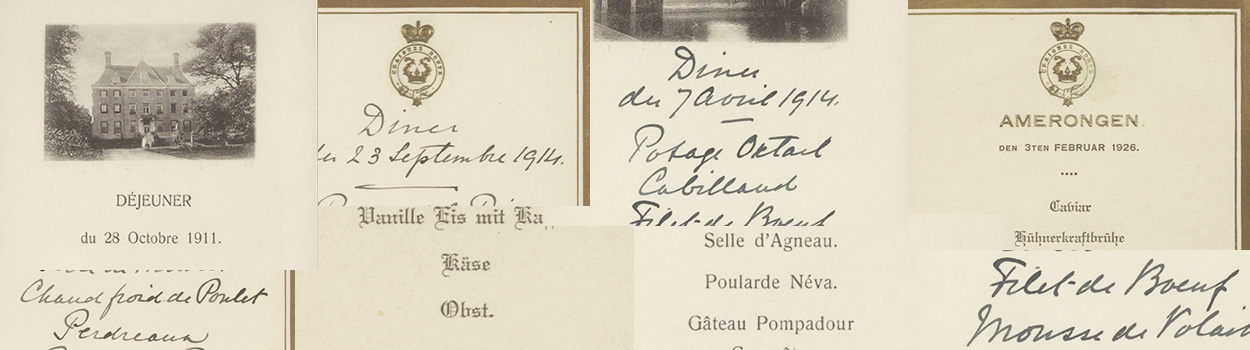 DÉJEUNER
du 28 Octobre 1911.
Chaud froid de Poulet
Perdreaux
Diner
23 Septembre 1914.
Vanille Eis mit
Käse
Obst.
Diner
du 7 Avril 1914.
Potage Oxtail
Cabillaud
Filet de Boeuf
Selle d'Agneau.
Poularde Néva.
Gâteau Pompadour
AMERONGEN.
DEN 3TEN FEBRUAR 1926.
Caviar
Hühnerkraftbrühe
Filet de Boeuf
Mousse de